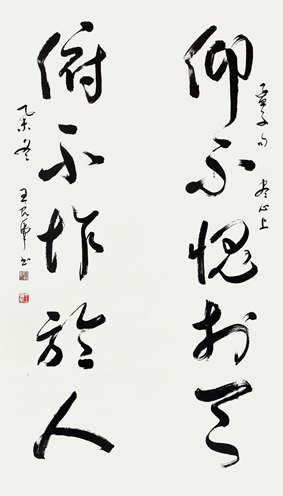 孟子句 尽心上
仰不愧於天
俯不怍於人
乙未冬 王 书